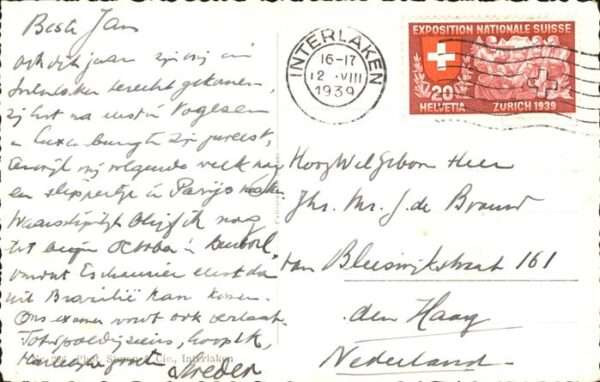 Beste Jan
Ook dit jaar zijn wij in
Interlaken terecht gekomen,
na eerst in Vogesen
en Luxemburg te zijn geweest,
terwijl wij volgende week nog
een slippertje in Parijs
Waarschijnlijk blijf ik nog
tot begin October in
omdat Escheurier eerst dan
uit Brazilië kan komen.
Ons examen wordt ook verlaat.
Tot spoedig ziens, hoop ik
Hartelijke groeten
Phot. & Cie., Interlaken
INTERLAKEN
16-17
12.VIII
1939
EXPOSITION NATIONALE SUISSE
20
HELVETIA ZURICH 1939
HoogWelGeboren Heer
Jhr. Mr. J. de Brauw
van Bleiswijkstraat 161
den Haag
Nederland